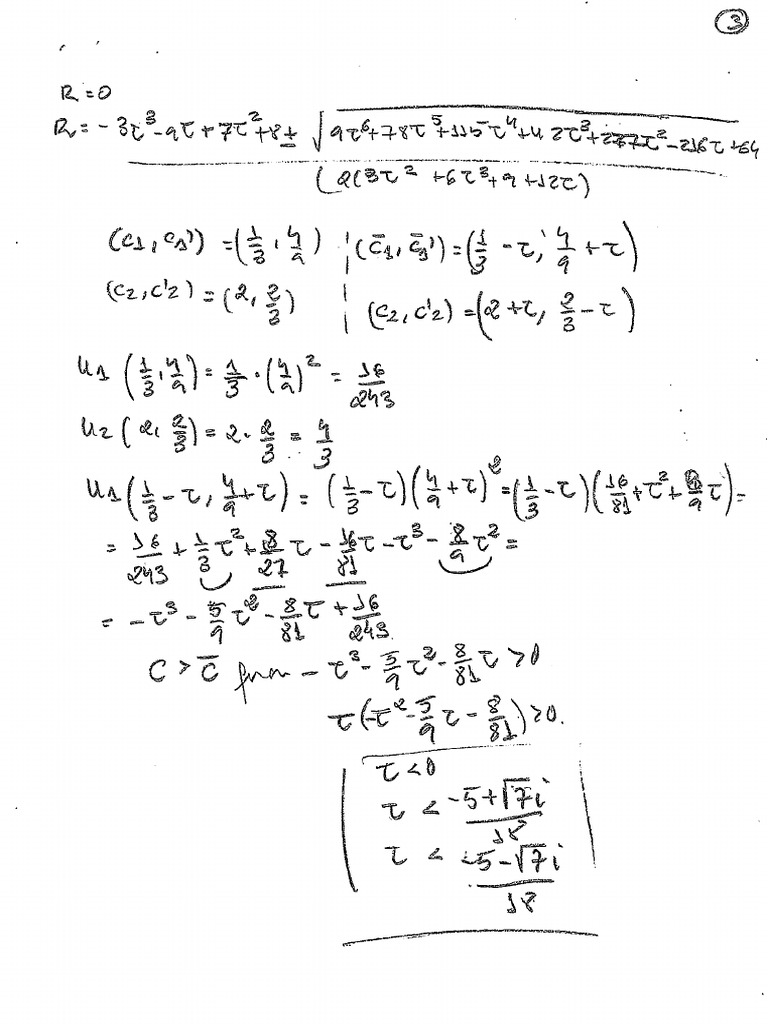 ③
R=0
R= -3τ³-9τ+7τ²+8± √(9τ⁶+78τ⁵+115τ⁴+42τ³+237τ²-216τ+64)
(2(3τ²+6τ³+9+12τ)
(c₁,c₁')=(1/3, 4/9) | (c̄₁,c̄₁')=(1/3-τ, 4/9+τ)
(c₂,c'₂)=(2, 2/3) | (c₂,c'₂)=(2+τ, 2/3-τ)
u₁(1/3, 4/9)=1/3·(4/9)²=16/243
u₂(2, 2/3)=2·2/3=4/3
u₁(1/3-τ, 4/9+τ)=(1/3-τ)(4/9+τ)²=(1/3-τ)(16/81+τ²+8/9τ)=
=16/243+1/3τ²+8/27τ-16/81τ-τ³-8/9τ²=
=-τ³-5/9τ²-8/81τ+16/243
C>C̄ from -τ³-5/9τ²-8/81τ>0
τ(-τ²-5/9τ-8/81)>0.
τ<0
τ < (-5+√7i)/18
τ < (-5-√7i)/18